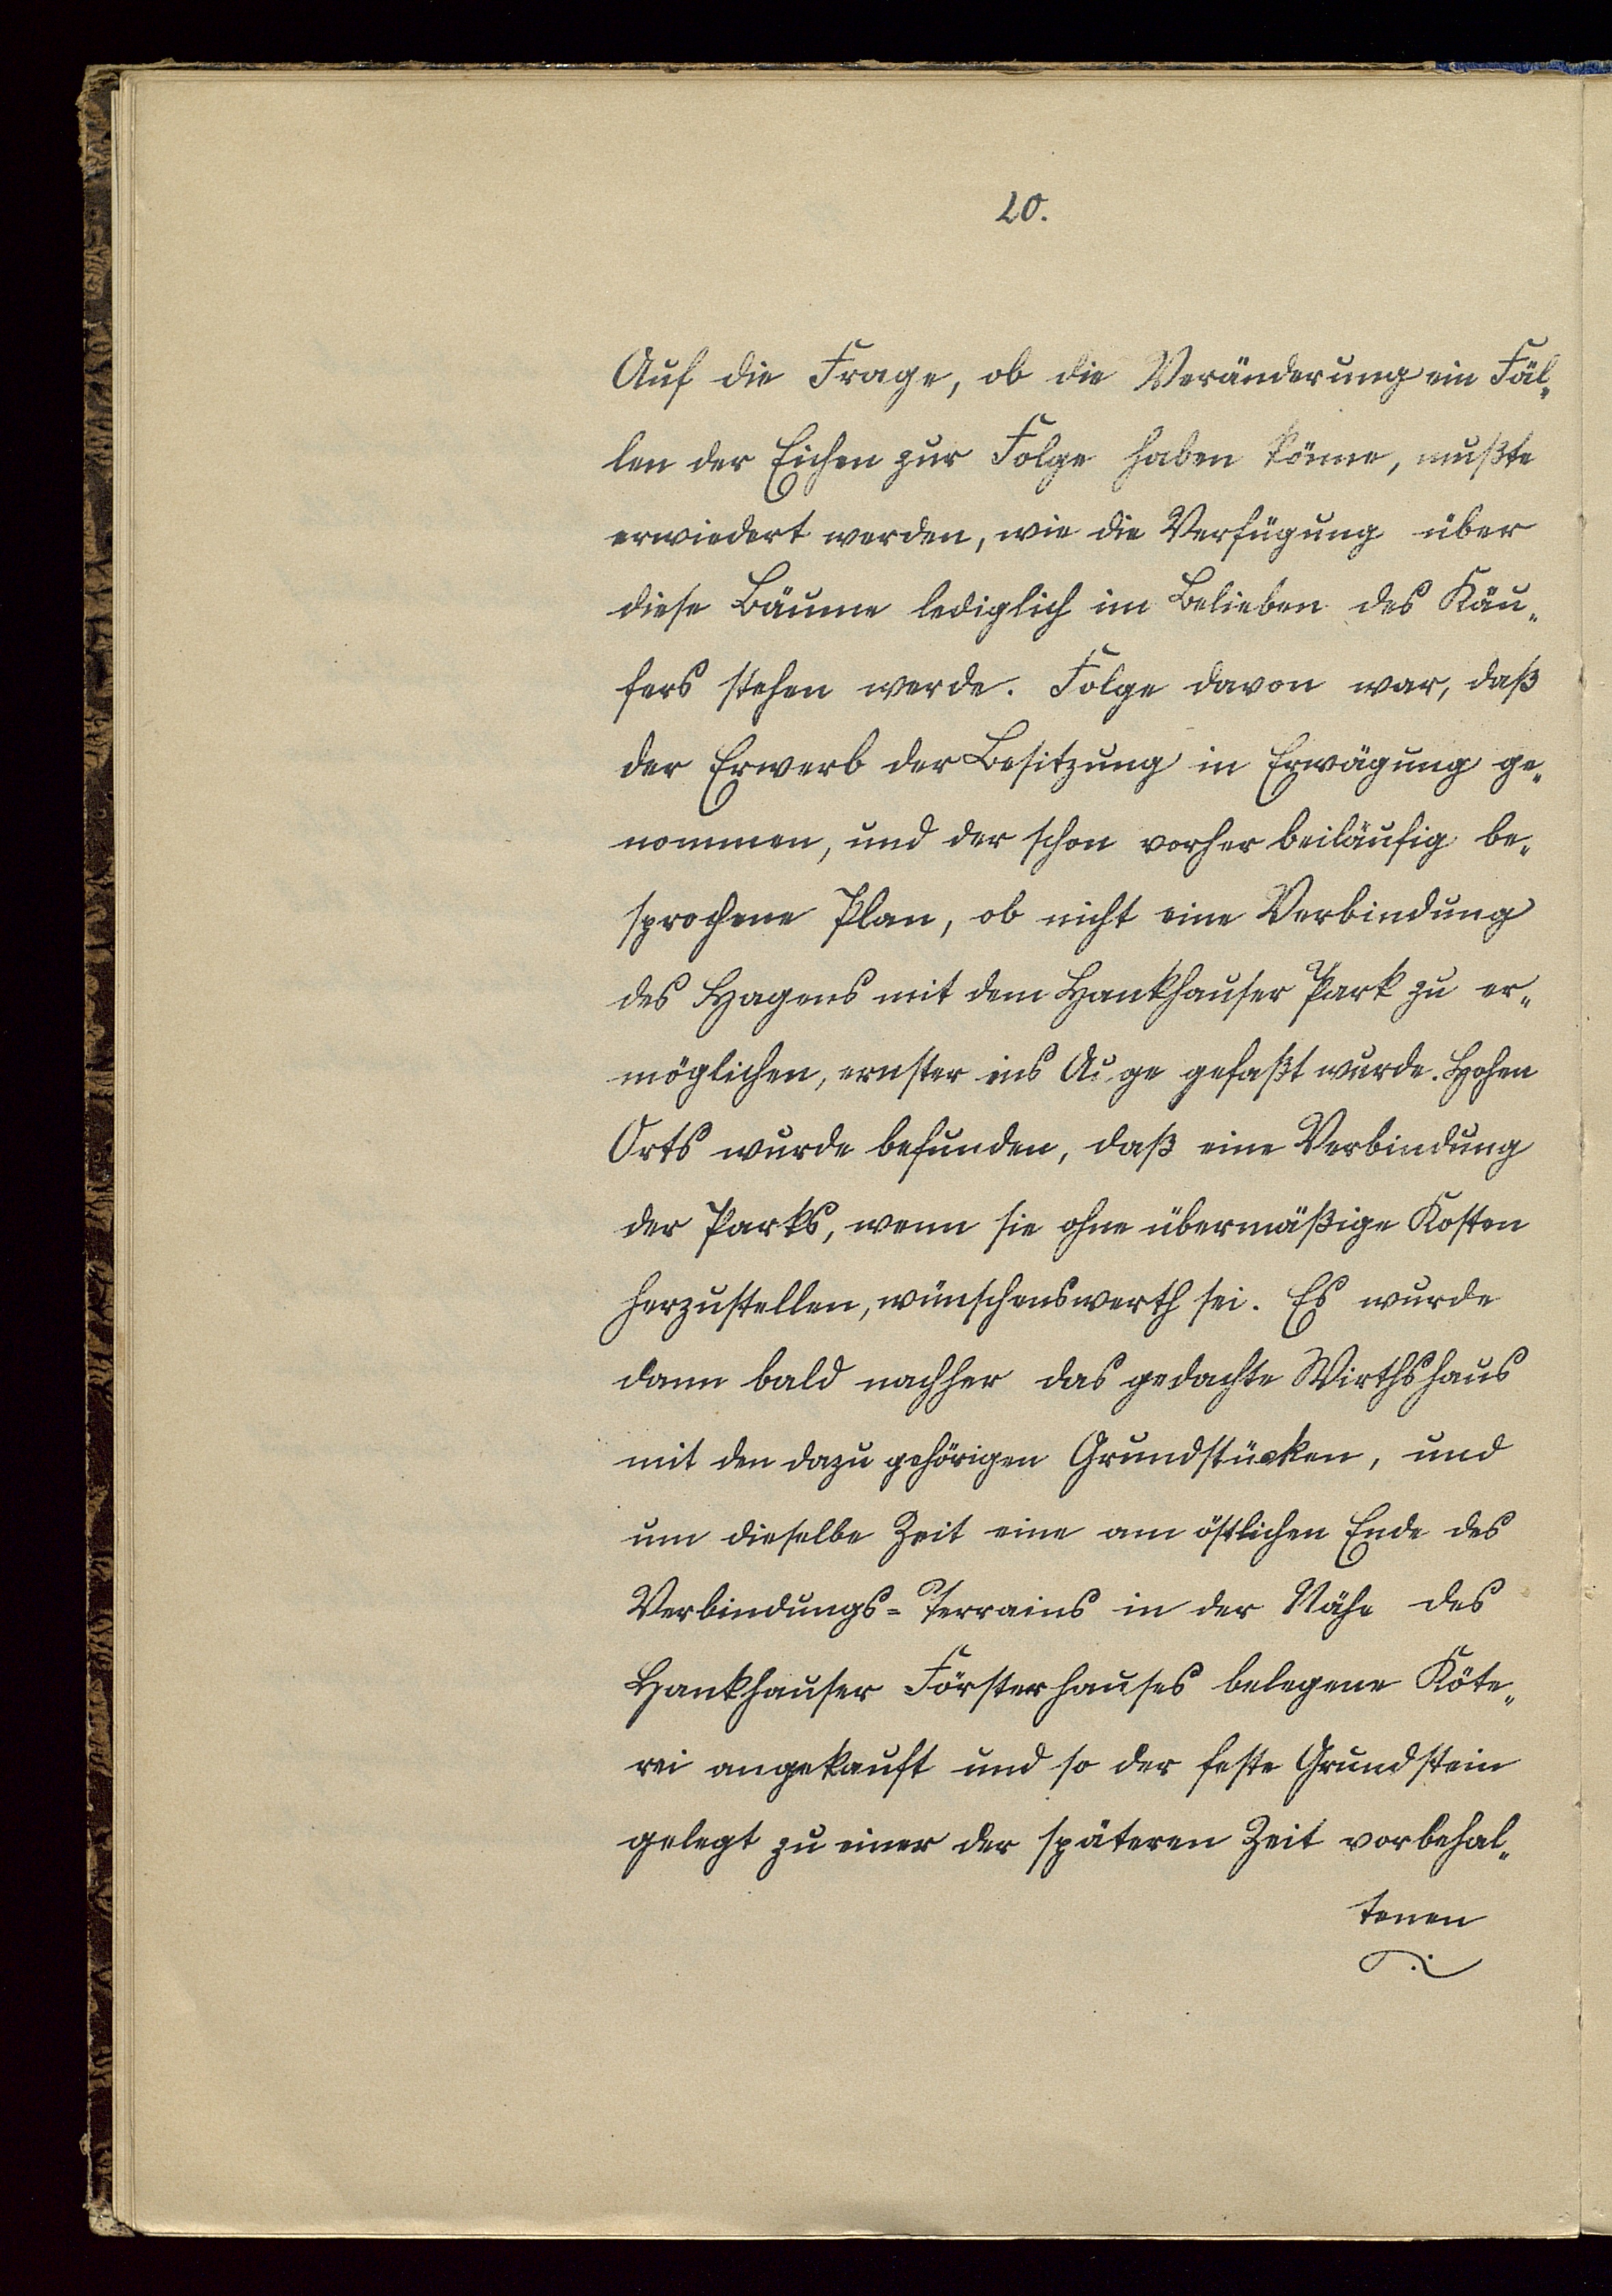 20.
Auf die Frage, ob die Veränderung ein Fäl-
len der Eichen zur Folge haben könne, mußte
erwiedert werden, wie die Verfügung über
diese Bäume lediglich im Belieben des Käu-
fers stehen werde. Folge davon war, daß
der Erwerb der Besitzung in Erwägung ge-
nommen, und der schon vorher beiläufig be-
sprochene Plan, ob nicht eine Verbindung
des Hagens mit dem Hankhauser Park zu er-
möglichen, ernster ins Auge gefaßt wurde. Hohen
Orts wurde befunden, daß eine Verbindung
der Parks, wenn sie ohne übermäßige Kosten
herzustellen, wünschenswerth sei. Es wurde
dann bald nachher das gedachte Wirthshaus
mit den dazu gehörigen Grundstücken, und
um dieselbe Zeit eine am östlichen Ende des
Verbindungs-Terrains in der Nähe des
Hankhauser Försterhauses belegene Köte-
rei angekauft und so der feste Grundstein
gelegt zu einer der späteren Zeit vorbehal-
tenen